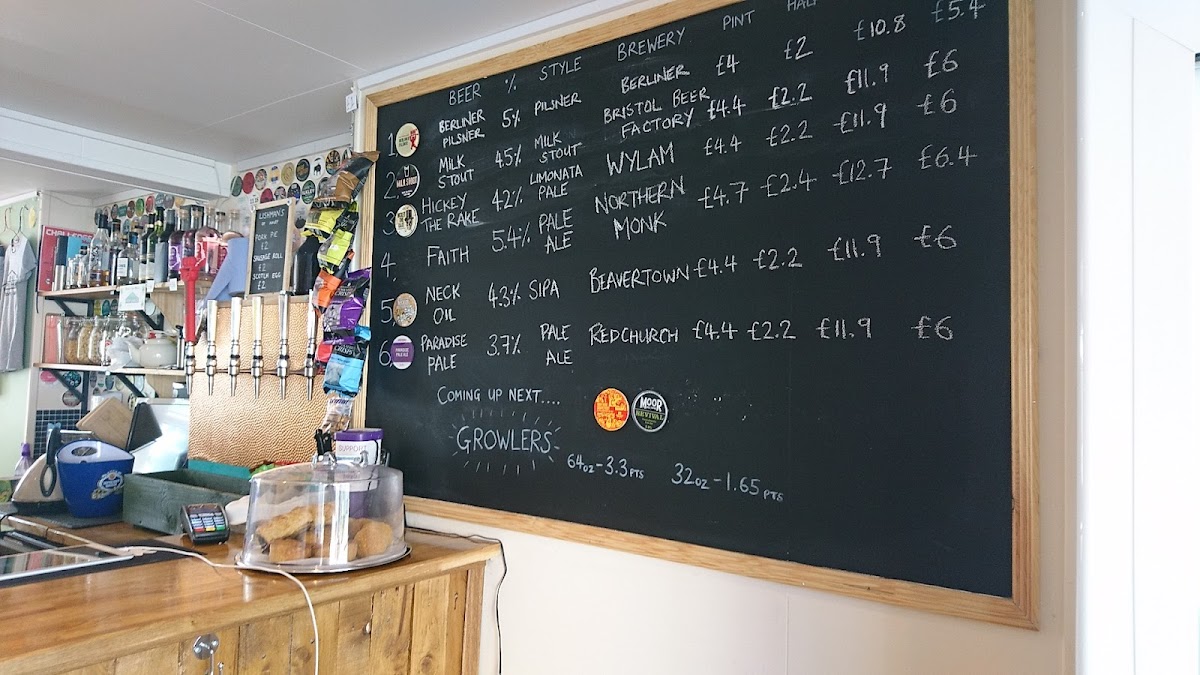 BEER % STYLE BREWERY PINT HALF
1. BERLINER PILSNER 5% PILSNER BERLINER £4 £2 £10.8 £5.4
2. MILK STOUT 4.5% MILK STOUT BRISTOL BEER FACTORY £4.4 £2.2 £11.9 £6
3. HICKEY THE RAKE 4.2% LIMONATA PALE WYLAM £4.4 £2.2 £11.9 £6
4. FAITH 5.4% PALE ALE NORTHERN MONK £4.7 £2.4 £12.7 £6.4
5. NECK OIL 4.3% SIPA BEAVERTOWN £4.4 £2.2 £11.9 £6
6. PARADISE PALE 3.7% PALE ALE REDCHURCH £4.4 £2.2 £11.9 £6
COMING UP NEXT....
MOOR
REVIVAL
GROWLERS
64oz-3.3PTS 32oz-1.65PTS
LISHMAN'S
PORK PIE
£2
SAUSAGE ROLL
£2
SCOTCH EGG
£2
SUPPORT